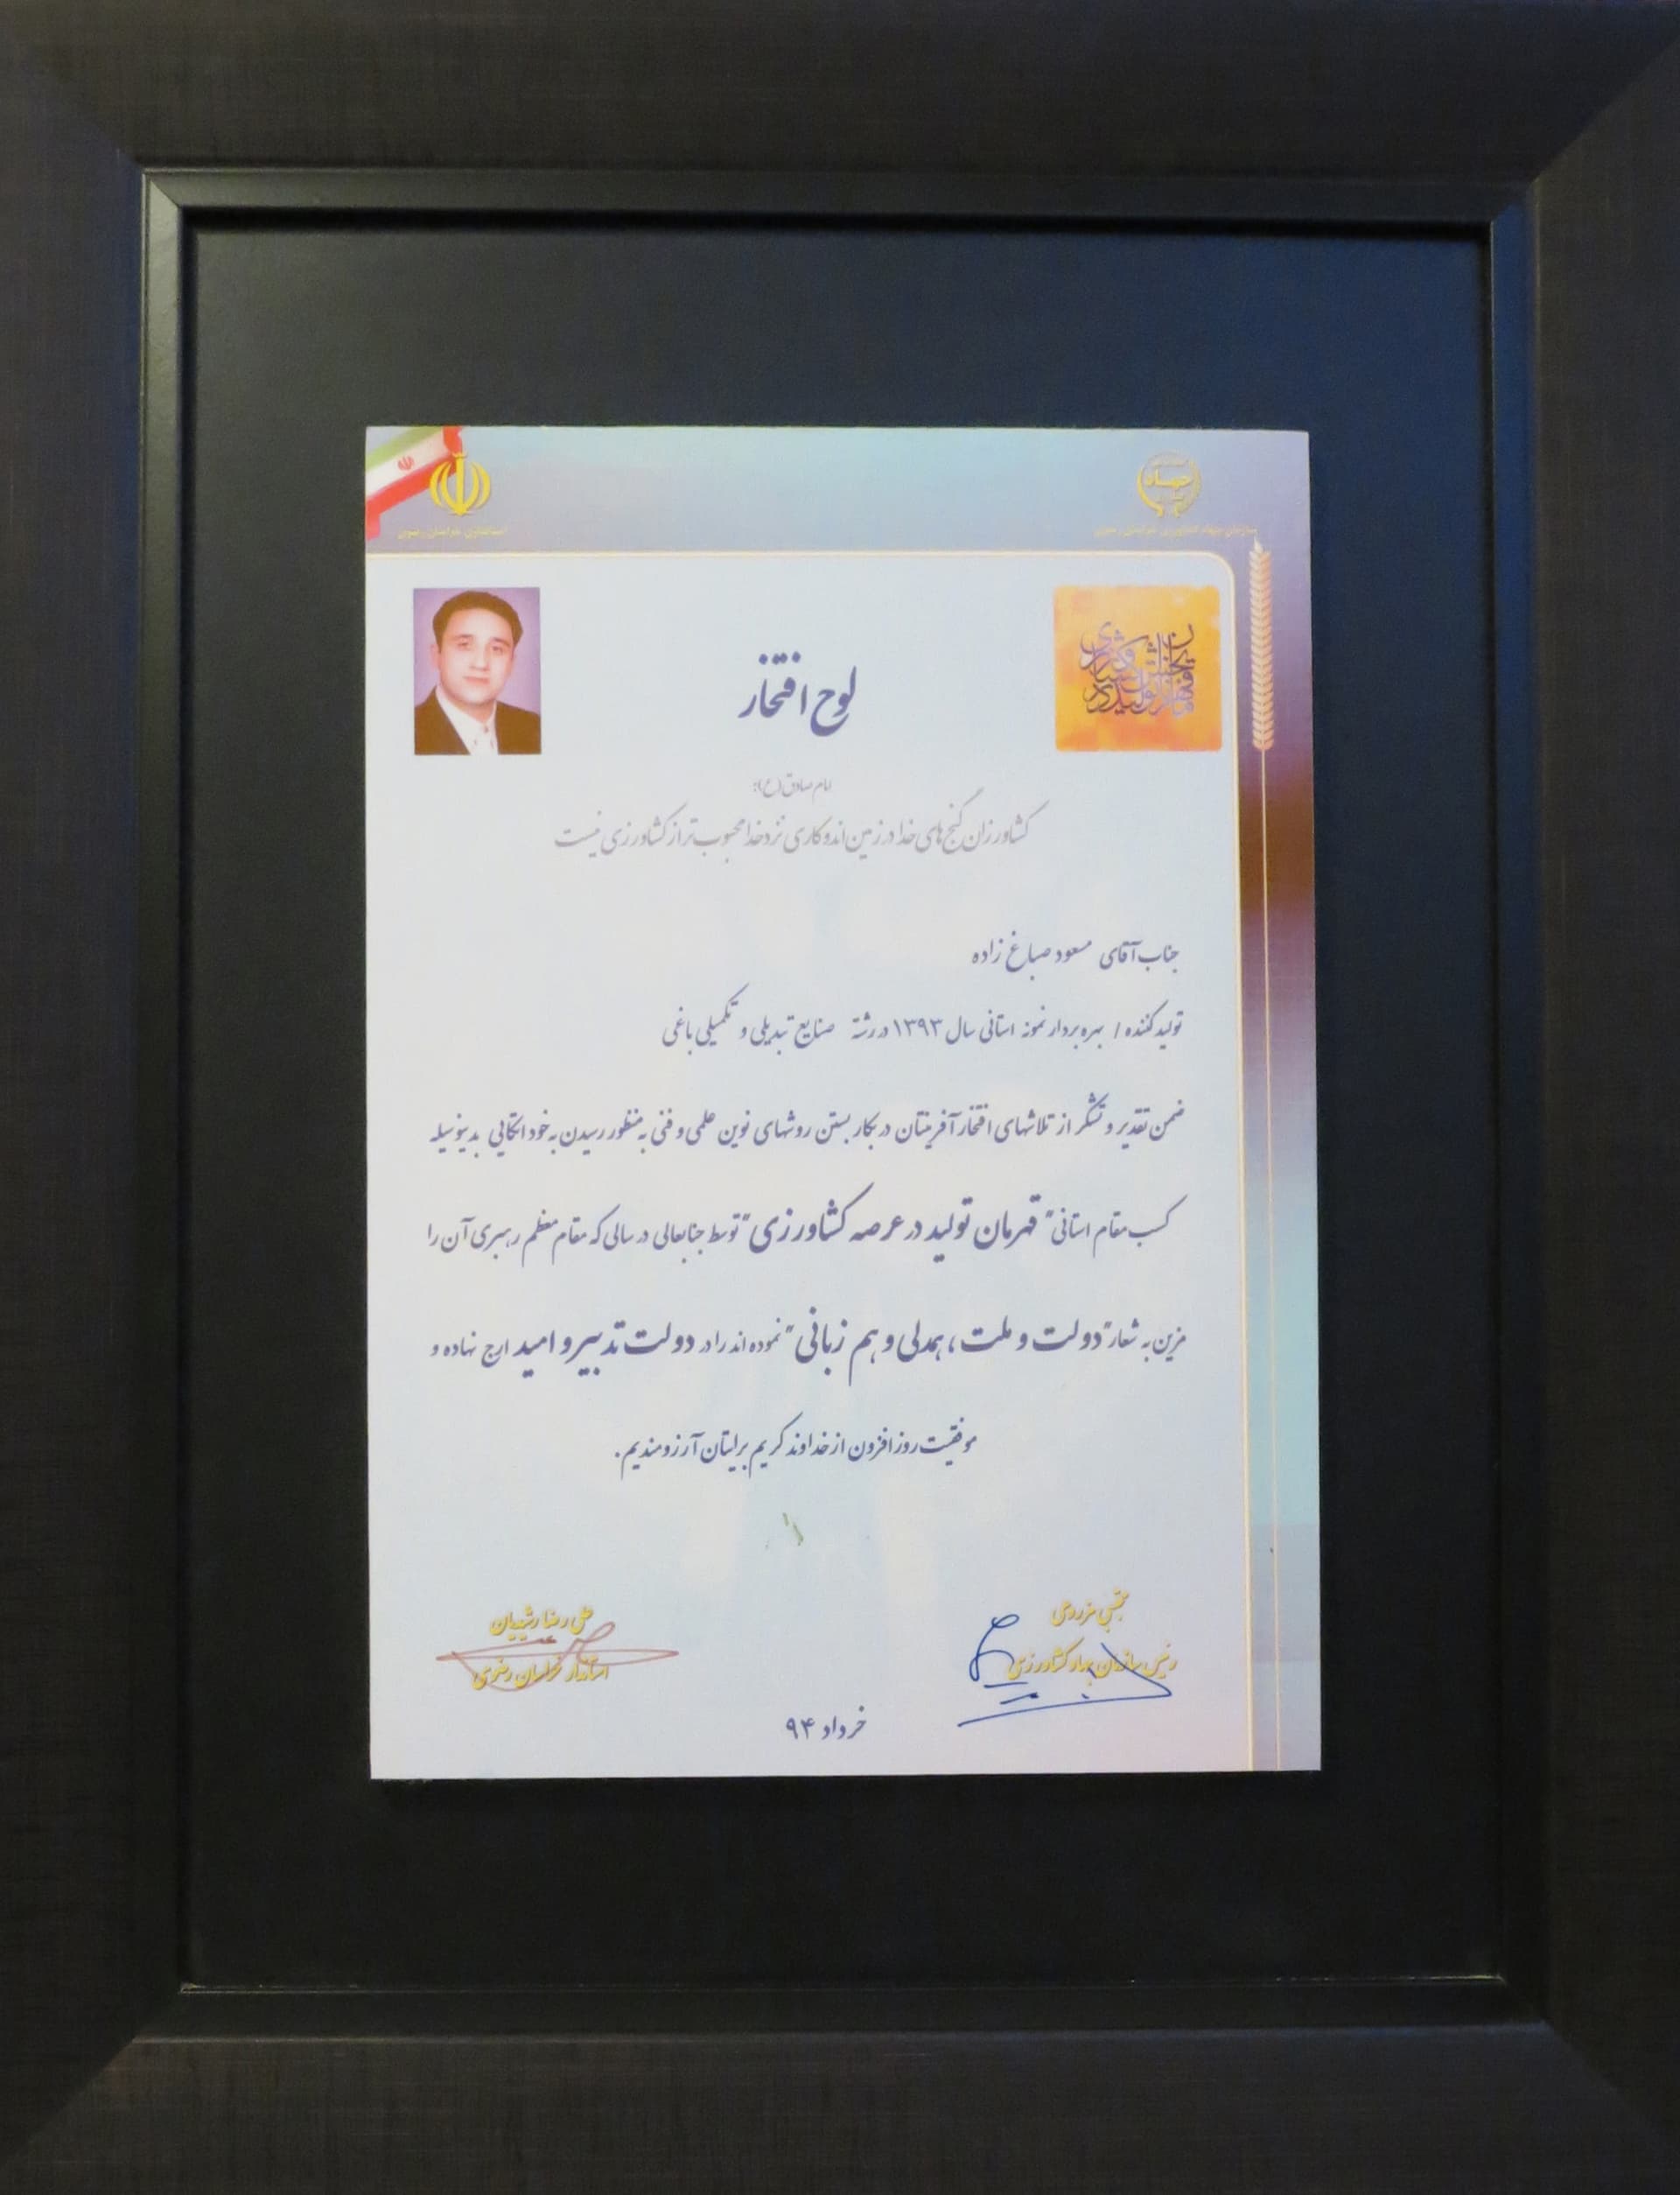 استانداری خراسان رضوی
سازمان جهاد کشاورزی خراسان رضوی
لوح افتخار
امام صادق (ع):
کشاورزان گنج های خدا در زمین اند و کاری نزد خدا محبوب تر از کشاورزی نیست
جناب آقای مسعود صباغ زاده
تولید کننده / بهره بردار نمونه استانی سال ۱۳۹۳ در رشته صنایع تبدیلی و تکمیلی باغی
ضمن تقدیر و تشکر از تلاشهای افتخار آفرینتان در بکار بستن روشهای نوین علمی و فنی به منظور رسیدن به خود اتکایی بدینوسیله
کسب مقام استانی "قهرمان تولید در عرصه کشاورزی" توسط جنابعالی در سالی که مقام معظم رهبری آن را
مزین به شعار "دولت و ملت، همدلی و هم زبانی" نموده اند را در دولت تدبیر و امید ارج نهاده و
موفقیت روز افزون از خداوند کریم برایتان آرزومندیم.
مجتبی مزروعی
رئیس سازمان جهاد کشاورزی
علی رضا رشیدیان
استاندار خراسان رضوی
خرداد ۹۴